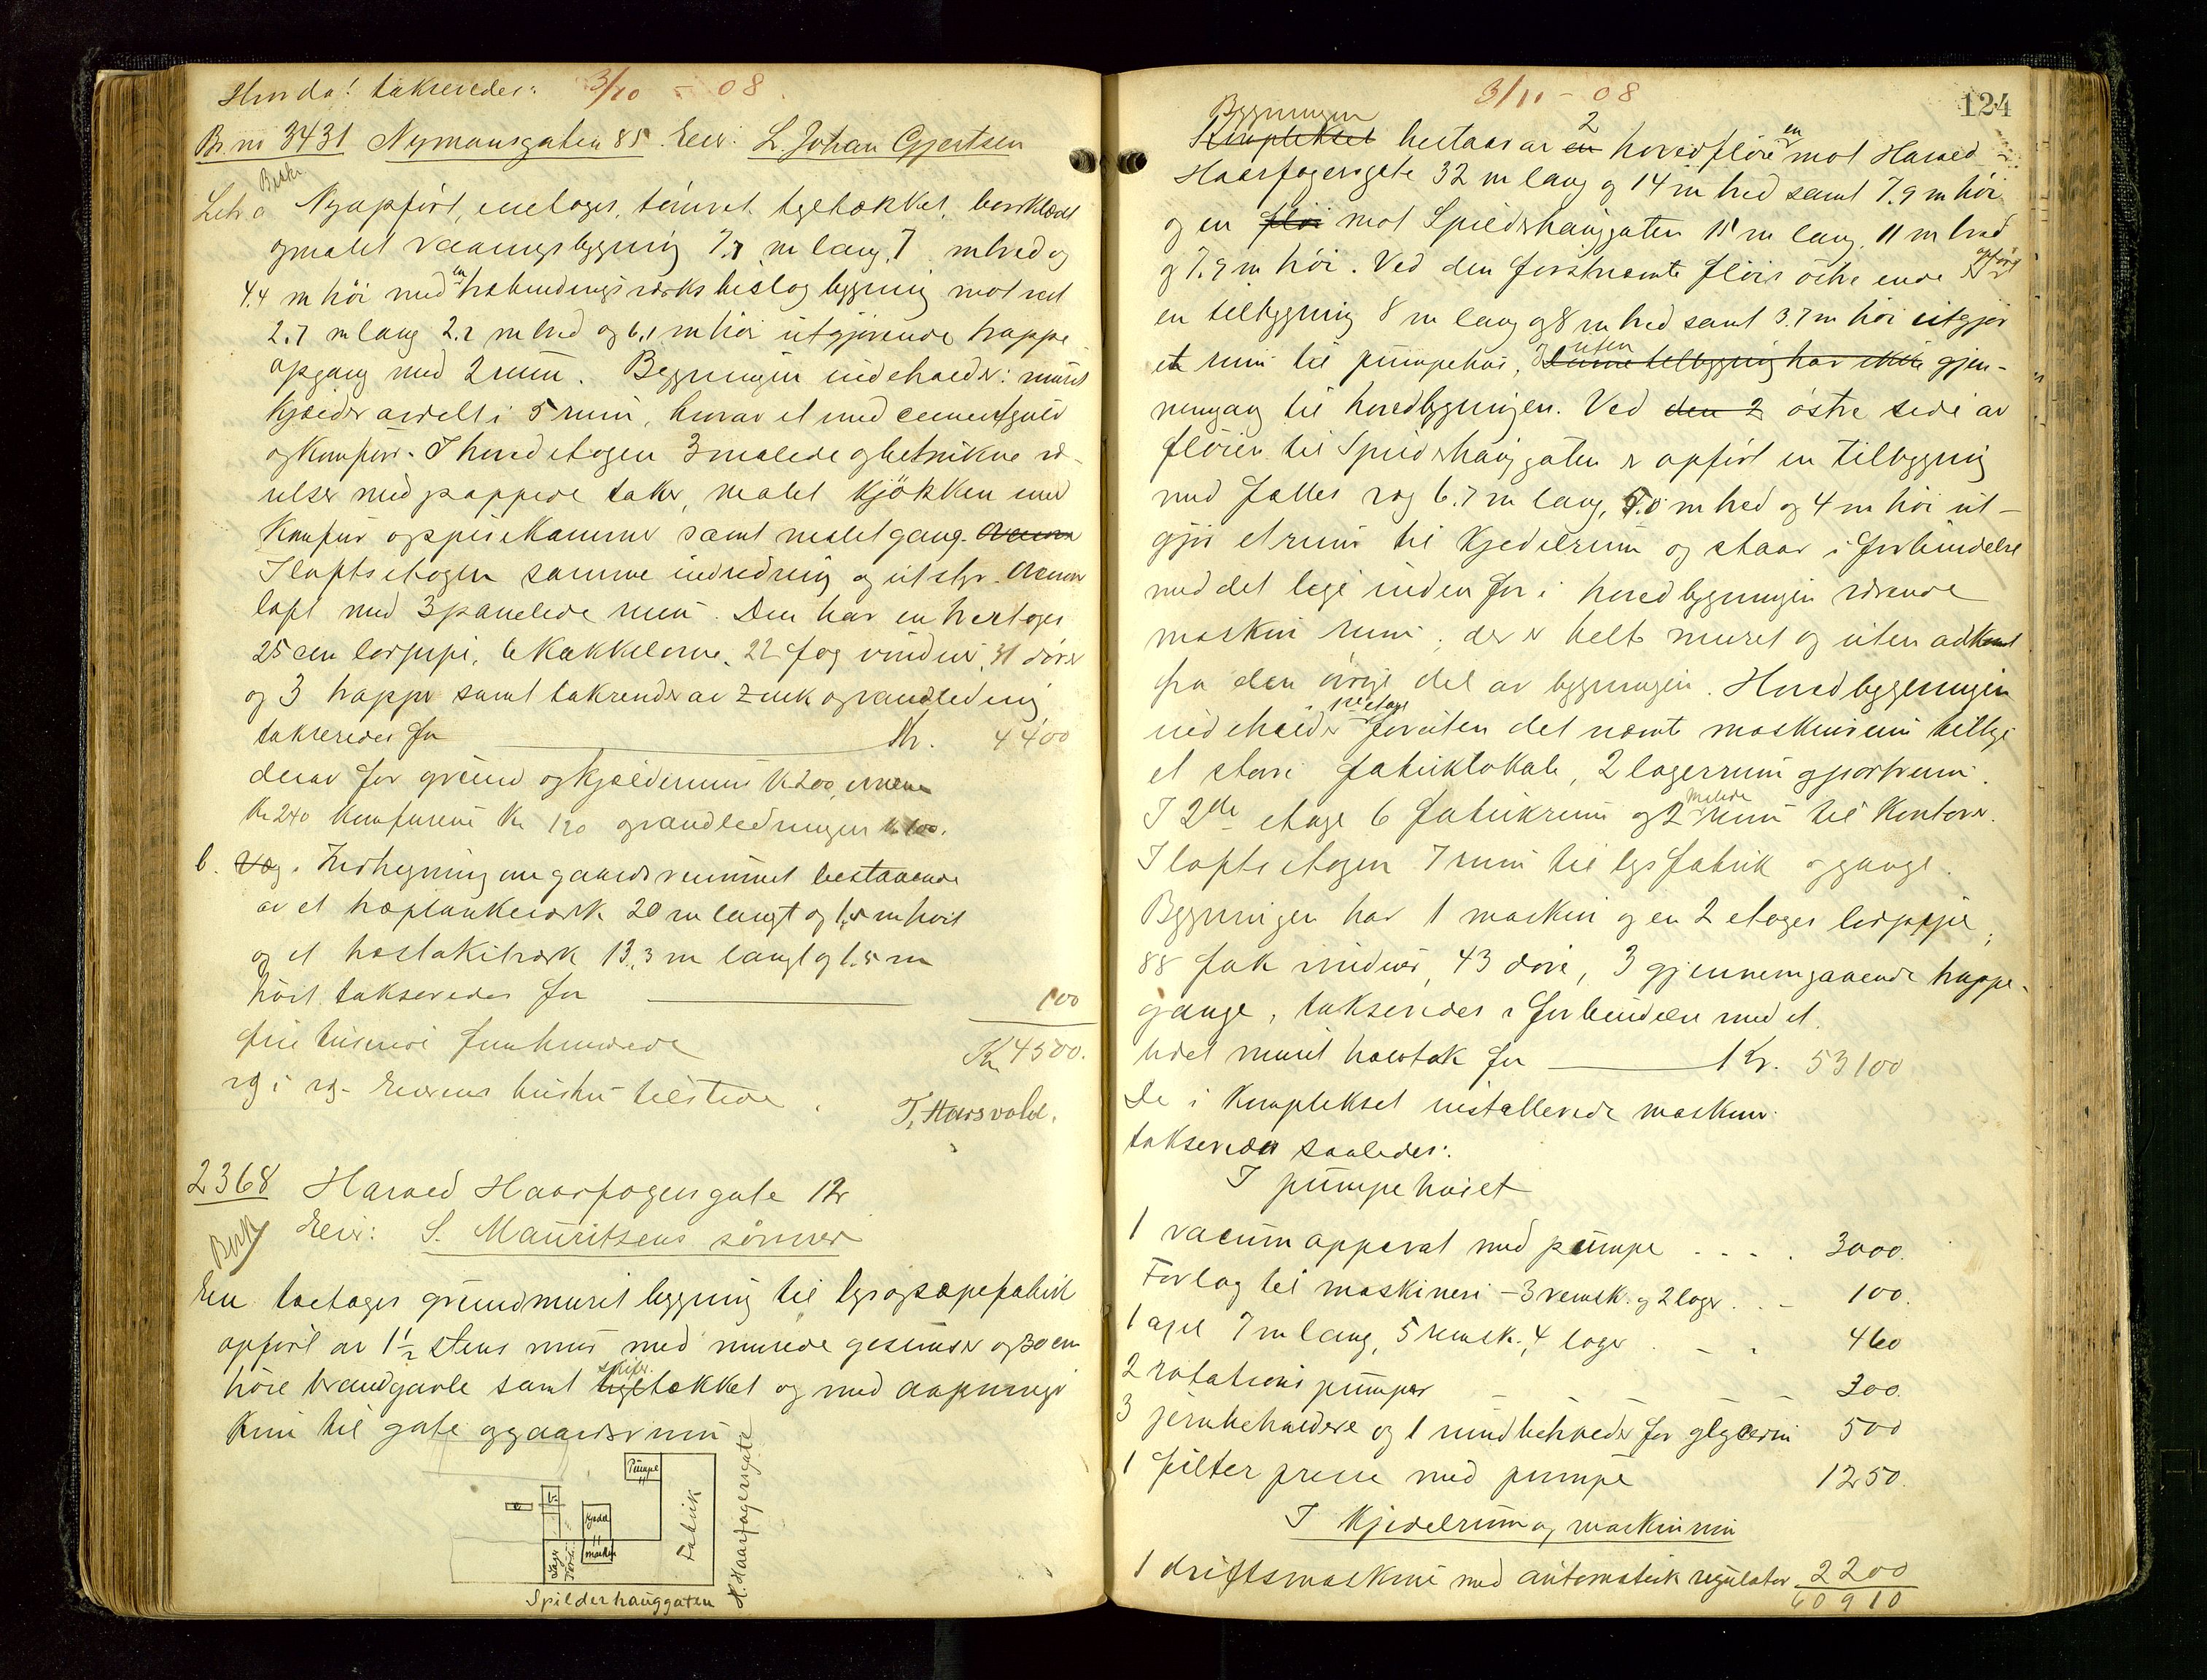 Hvorda! takseredes: 3/10 - 08.
Br. nr 3431 Nymansgaten 85. Eier: L. Johan Gjertsen
Beskr
Litr a Nyopført, enetages, tømret, tegltækket, bordklædt
og malet vaaningsbygning 7.7 m lang, 7 m bred og
4.4 m høi med en træbindingsværks bislag bygning mot vest
2.7 m lang 2.2 m bred og 6.1 m høi utgjørende trappe
opgang med 2 rum. Bygningen indeholder: muret
kjælder avdelt i 5 rum, hvorav et med cementgulv
og komfur. I hovedetagen 3 malede og betrukne væ-
relser med pappede taker, malet kjøkken med
komfur og spisekammer samt malet gang.
I loftsetagen samme indredning og utstyr. Øverste
loft med 3 panelede rum. Den har en tretages
25 cm lerpipe, 6 kakkelovne, 22 fag vinduer, 31 dører
og 3 trapper samt takrender av zink og vandledning
takseredes for Kr. 4400
derav for grund og kjælderrum Kr 200, ovnene
Kr 240 komfurene Kr 120 og vandledningen Kr 100.
b. Væg. Indhegning om gaardsrummet bestaaende
av et træplankeverk 20 m langt og 1,8 m høit
og et træstakitværk 13,3 m langt og 1.5 m
høit, takseredes for 100
fire tusende femhundrede Kr 4500.
vg i vg - Eierens hustru tilstede.
T. Haarsvold.
2368 Harald Haarfagersgate 12
Besk
Eier: S. Mauritzens sønner
En toetages grundmuret bygning til lys og sæpefabrik
opført av 1 1/2 stens mur med murede gesimser og 30 cm
skifer
høie brandgavle samt tegltækket og med aapninger
kun til gate og gaardsrum
Pumpe
Kjedel
maskin
Lager
Fabrik
H. Haarfagersgate
Spilderhauggaten
3/11 - 08
124
Bygningen
Komplekset bestaar av en 2 hovedfløie en mot Harald
Haarfagersgate 32 m lang og 14 m bred samt 7.9 m høi
og en fløi mot Spilderhauggaten 15 m lang, 11 m bred
og 7.9 m høi. Ved den førstnævnte fløis østre ende er opført
en tilbygning 8 m lang og 8 m bred samt 3.7 m høi utgjør
et rum til pumpehus, uten Denne tilbygning har ikke gjen-
nemgang til hovedbygningen. Ved den 2 østre side av
fløien til Spilderhauggaten er opført en tilbygning
med fælles væg 6.7 m lang, 5.0 m bred og 4 m høi ut-
gjør et rum til kjedelrum og staar i forbindelse
med det lige inden for i hovedbygningen værende
maskinrum, der er helt muret og uten adkomst
fra den øvrige del av bygningen. Hovedbygningen
indeholder i 1ste etage foruten det nævnte maskinrum tillige
et større fabriklokale, 2 lagerrum og portrum.
I 2den etage 6 fabrikrum og 2 malede rum til kontorer.
I loftsetagen 7 rum til lysfabrik og gange.
Bygningen har 1 maskin og en 2 etages lerpipe,
88 fak vinduer, 43 døre, 3 gjennemgaaende trappe-
gange, takseredes i forbindelse med et
helt muret halvtak for Kr. 53100
De i komplekset installerede maskiner
takseredes saaledes:
I pumpehuset
1 vacumapparat med pumpe 3000.
Forlag til maskineri - 3 remsk. og 2 lager 100.
1 axel 7 m lang, 5 remsk., 4 lager 460
2 rotations pumper 300.
3 jernbeholdere og 1 rundbeholder for glycerin 500
1 filter presse med pumpe 1250.
I kjedelrum og maskinrum
1 driftsmaskine med automatisk regulator 2200
60910